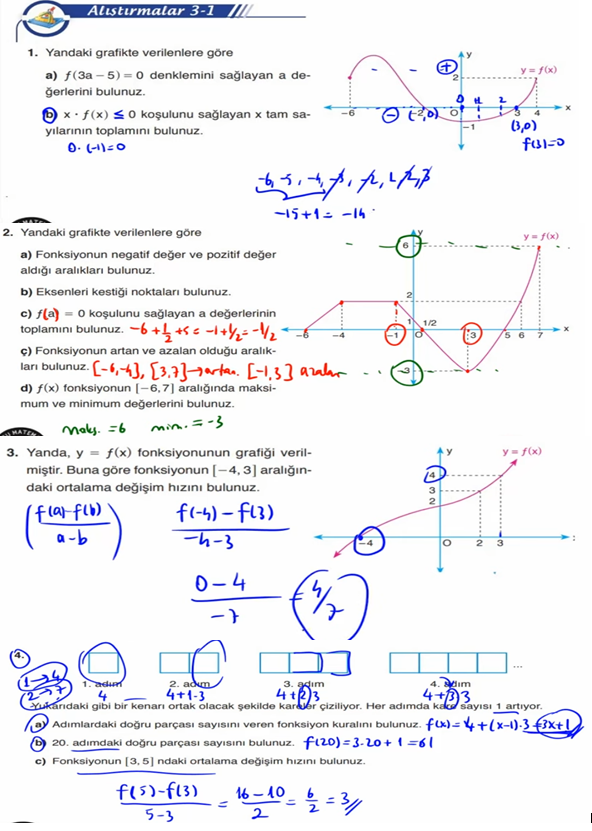 Alıştırmalar 3-1
1. Yandaki grafikte verilenlere göre
a) f(3a − 5) = 0 denklemini sağlayan a de-
ğerlerini bulunuz.
b) x · f(x) ≤ 0 koşulunu sağlayan x tam sa-
yılarının toplamını bulunuz.
0 · (-1) = 0
y
y = f(x)
+
2
0 1 2
−6 − (-2,0) −2 O 3 4 x
−1
(3,0)
f(3)=0
-6, -5, -4, -3, -2, 1, 2, 3
-15+1 = -14
2. Yandaki grafikte verilenlere göre
a) Fonksiyonun negatif değer ve pozitif değer
aldığı aralıkları bulunuz.
b) Eksenleri kestiği noktaları bulunuz.
c) f(a) = 0 koşulunu sağlayan a değerlerinin
toplamını bulunuz. -6+1/2+5 = -1+1/2 = -1/2
ç) Fonksiyonun artan ve azalan olduğu aralık-
ları bulunuz. [-6,-4], [3,7] → artan. [-1,3] azalan
d) f(x) fonksiyonun [−6,7] aralığında maksi-
mum ve minimum değerlerini bulunuz.
maks. = 6 min. = -3
y
y = f(x)
6
2
1 1/2
−6 −4 −1 O 3 5 6 7 x
−3
3. Yanda, y = f(x) fonksiyonunun grafiği veril-
miştir. Buna göre fonksiyonun [−4, 3] aralığın-
daki ortalama değişim hızını bulunuz.
(f(a)-f(b) / a-b)
f(-4) - f(3) / -4-3
0-4 / -7 = 4/7
y
y = f(x)
4
3
2
−4 O 2 3
4.
1→4
2→7
...
1. adım 2. adım 3. adım 4. adım
4 4+1·3 4+2·3 4+3·3
Yukarıdaki gibi bir kenarı ortak olacak şekilde kareler çiziliyor. Her adımda kare sayısı 1 artıyor.
a) Adımlardaki doğru parçası sayısını veren fonksiyon kuralını bulunuz. f(x) = 4+(x-1)·3 = 3x+1
b) 20. adımdaki doğru parçası sayısını bulunuz. f(20) = 3·20+1 = 61
c) Fonksiyonun [3, 5] ndaki ortalama değişim hızını bulunuz.
f(5)-f(3) / 5-3 = 16-10 / 2 = 6/2 = 3